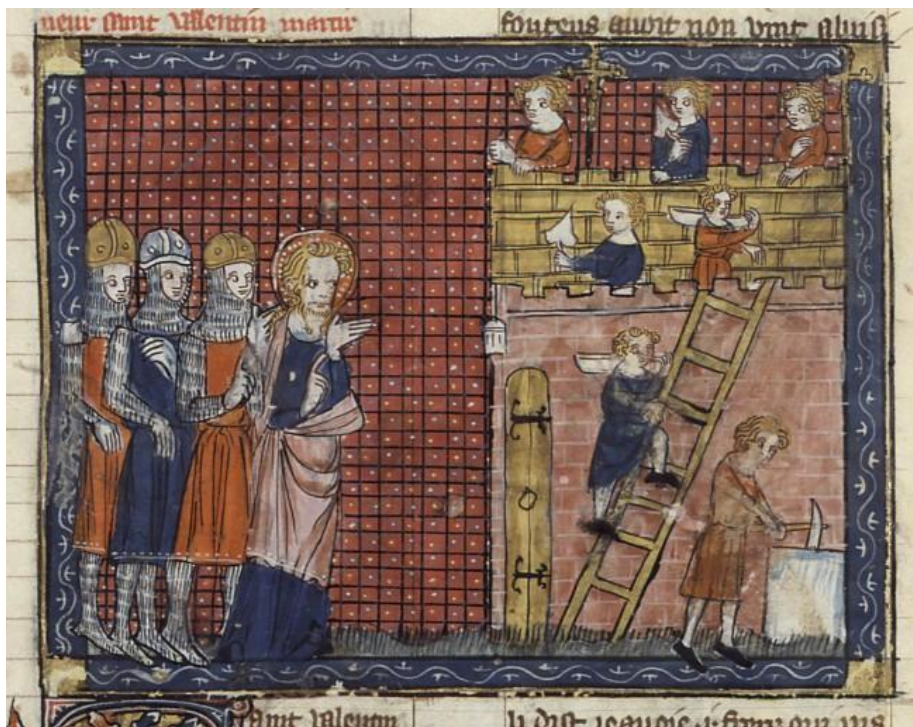 neur saint valentin martir
fonteus auoit non vint a lui si
aint valentin
li dist